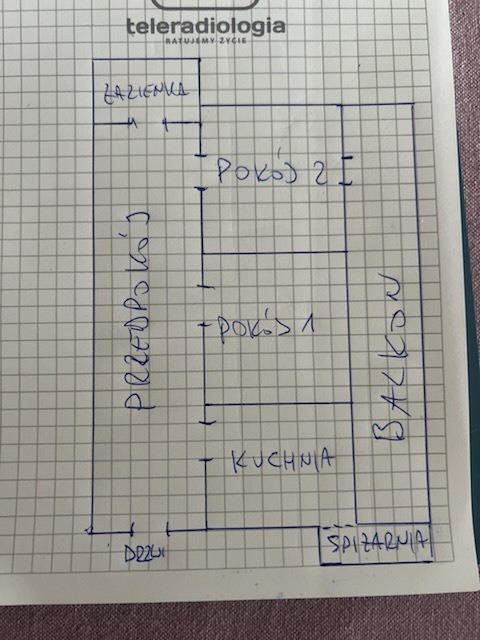 teleradiologia
RATUJEMY ŻYCIE
ŁAZIENKA
POKÓJ 2
PRZEDPOKÓJ
POKÓJ 1
BALKON
KUCHNIA
DRZWI
SPIŻARNIA